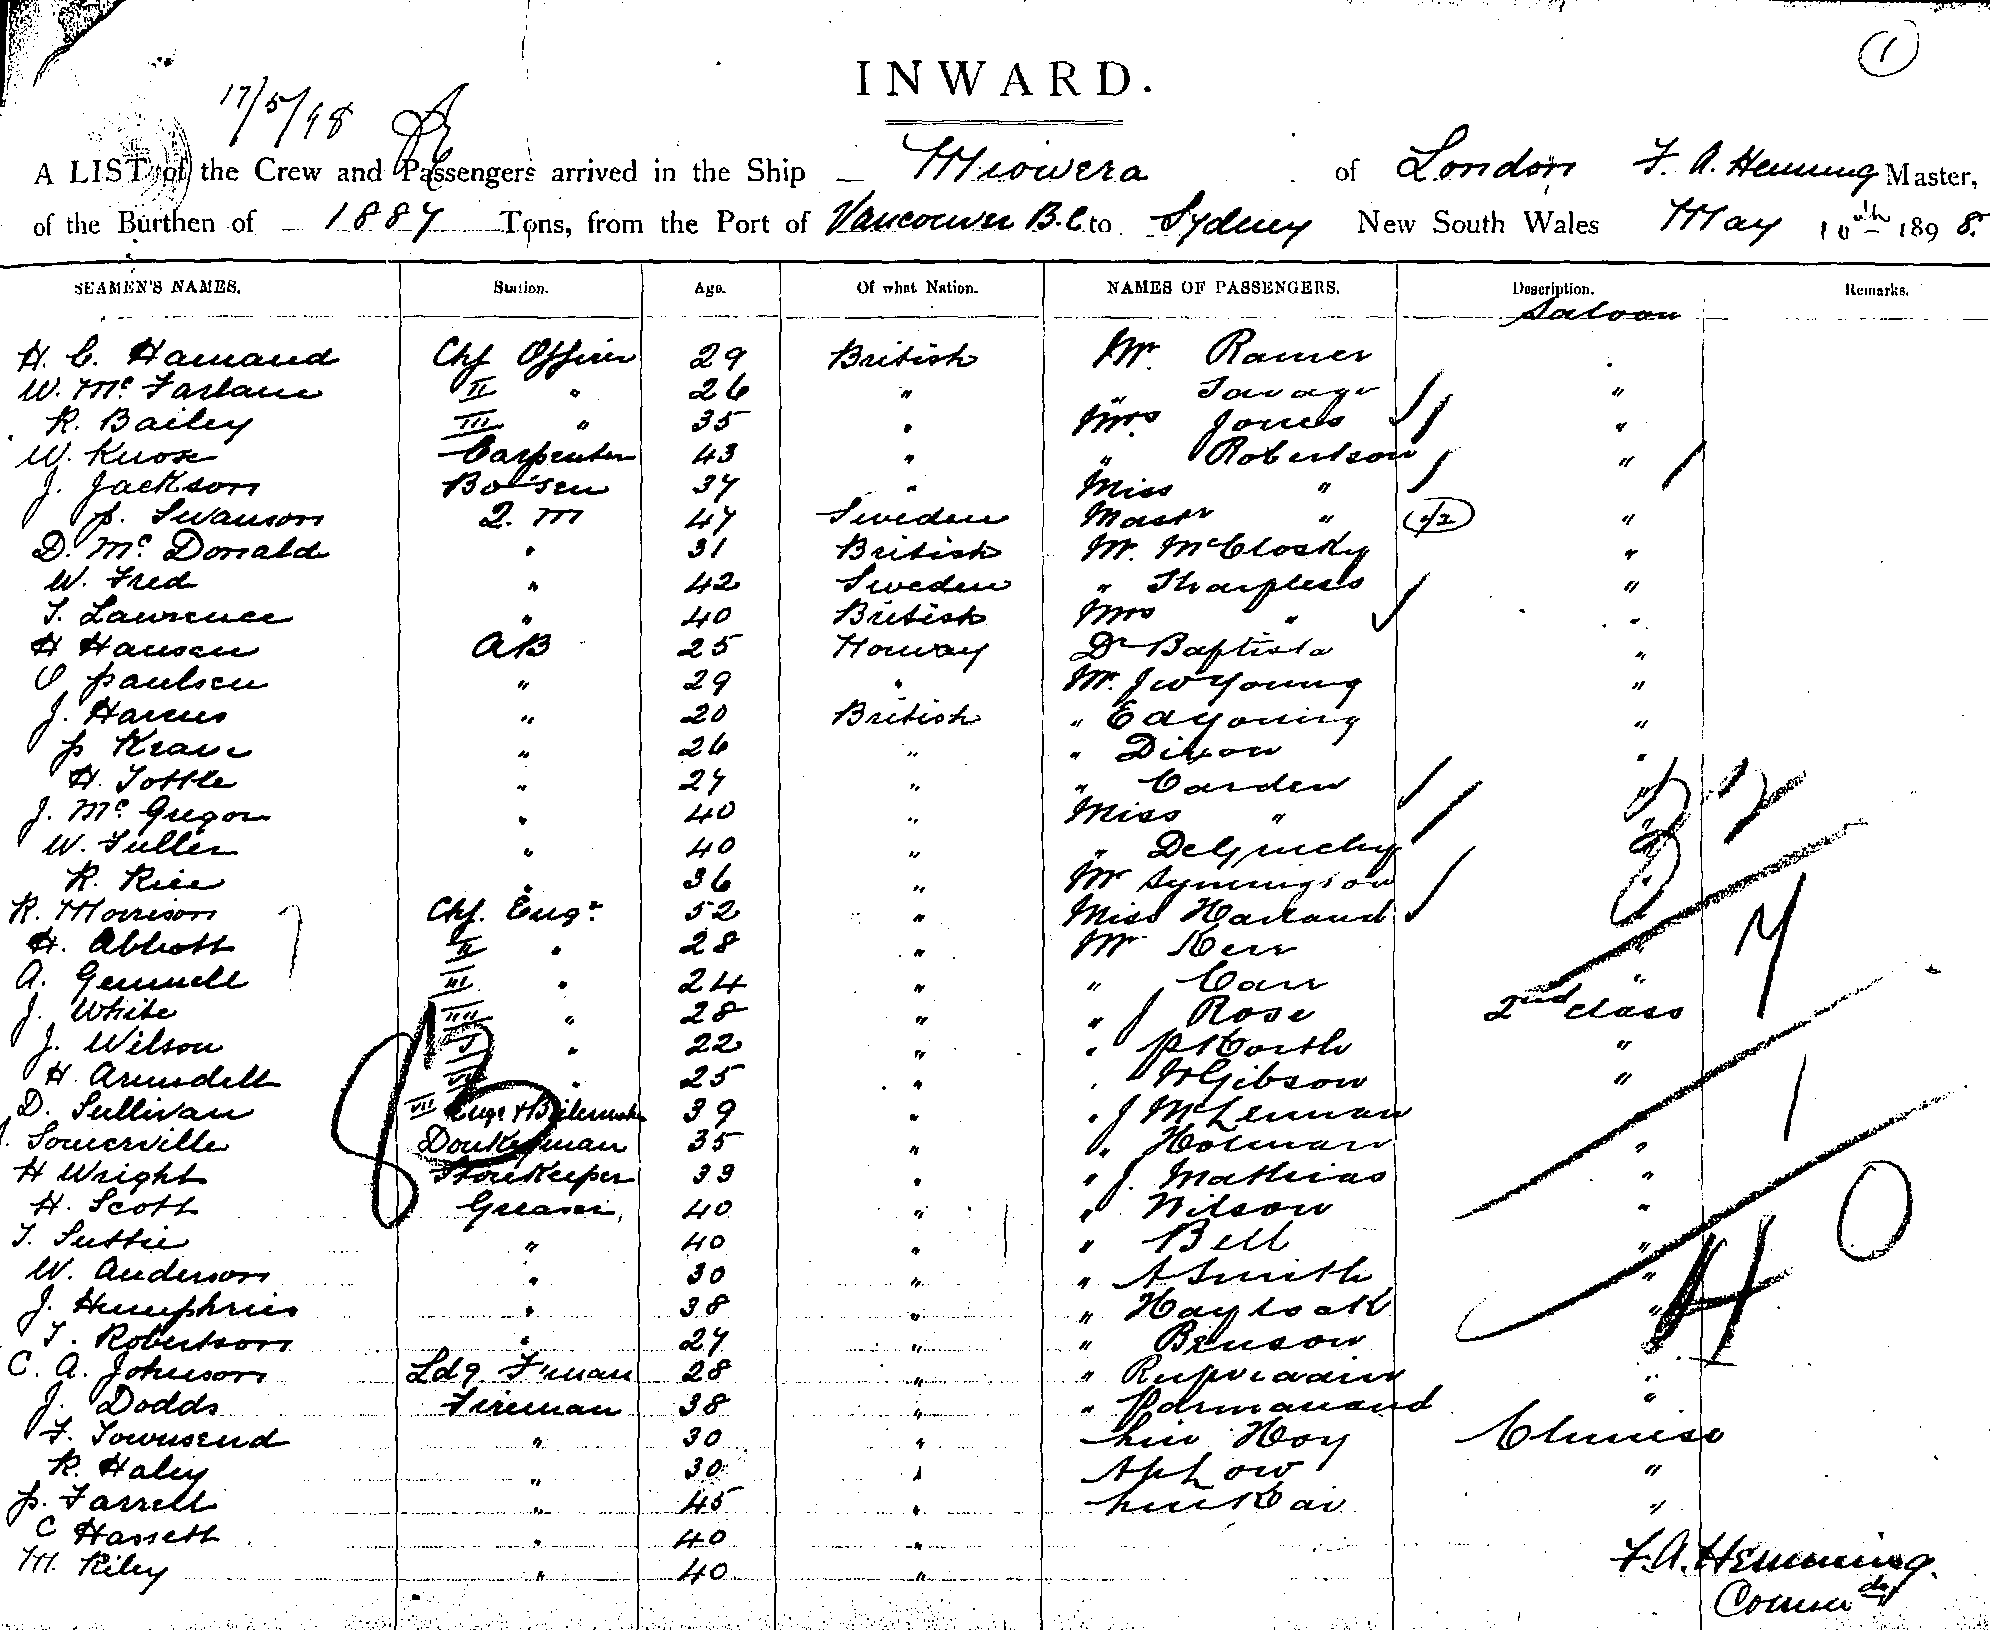 INWARD.
1
17/5/98
A LIST of the Crew and Passengers arrived in the Ship Miowera of London F. A. Hemming Master,
of the Burthen of 1887 Tons, from the Port of Vancouver B.C to Sydney New South Wales May 10th 1898.
SEAMEN'S NAMES. Station. Age. Of what Nation. NAMES OF PASSENGERS. Description. Remarks.
Saloon
H. C. Hamand Chf Officer 29 British Mr. Ramer
W. Mc. Farlane II " 26 " " Savage "
R. Bailey III " 35 " Mrs. Jones "
W. Knox Carpenter 43 " " Robertson "
J. Jackson Bo'sen 37 " Miss "
P. Swanson Q. M 47 Sweden Mastr " 1/2 "
D. Mc. Donald " 31 British Mr. McClosky "
W. Fred " 42 Sweden " Sharpless "
T. Lawrence " 40 British Mrs " "
H Hansen AB 25 Norway Dr Baptista "
O Paulsen " 29 " Mr. J W Young "
J. Harcus " 20 British " E A Young "
P Krane " 26 " " Dixon "
H. Tottle " 27 " " Carden "
J. Mc. Gregor " 40 " Miss "
W. Fuller " 40 " " DeGruchy
R. Rice " 36 " Mr Symington
R. Morrison Chf. Engr. 52 " Miss Harland
H. Abbott II " 28 " Mr Kerr "
A. Gemmell III " 24 " " Carr "
J. White IIII " 28 " " J Rose 2nd class
J. Wilson " 22 " " P North "
H. Arundell " 25 " " W Gibson "
D. Sullivan VII Engr & Boilermaker 39 " " J McLennan
J. Somerville Donkeyman 35 " " Holman "
H Wright Storekeeper 33 " " J. Mathias "
H. Scott Greaser 40 " " Wilson "
T. Suttie " 40 " " Bell "
W. Anderson " 30 " " A Smith "
J. Humphries " 38 " " Haylock "
T. Robertson " 27 " " Benson
C. A. Johnson Ldg. F'man 28 " " "
J. Dodds Fireman 38 " " Parmanand "
F. Townsend " 30 " Hoy Chinese
R. Haley " 30 " Ah Low "
P. Farrell " 45 " "
C Hassett " 40 "
M. Riley " 40 "
F. A. Hemming.
Comm dr